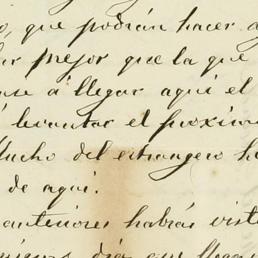 que podrán hacer
mejor que la que
á llegar aquí el
levantar el proximo
Mucho del estrangero
de aquí.
anteriores habrás visto
dia